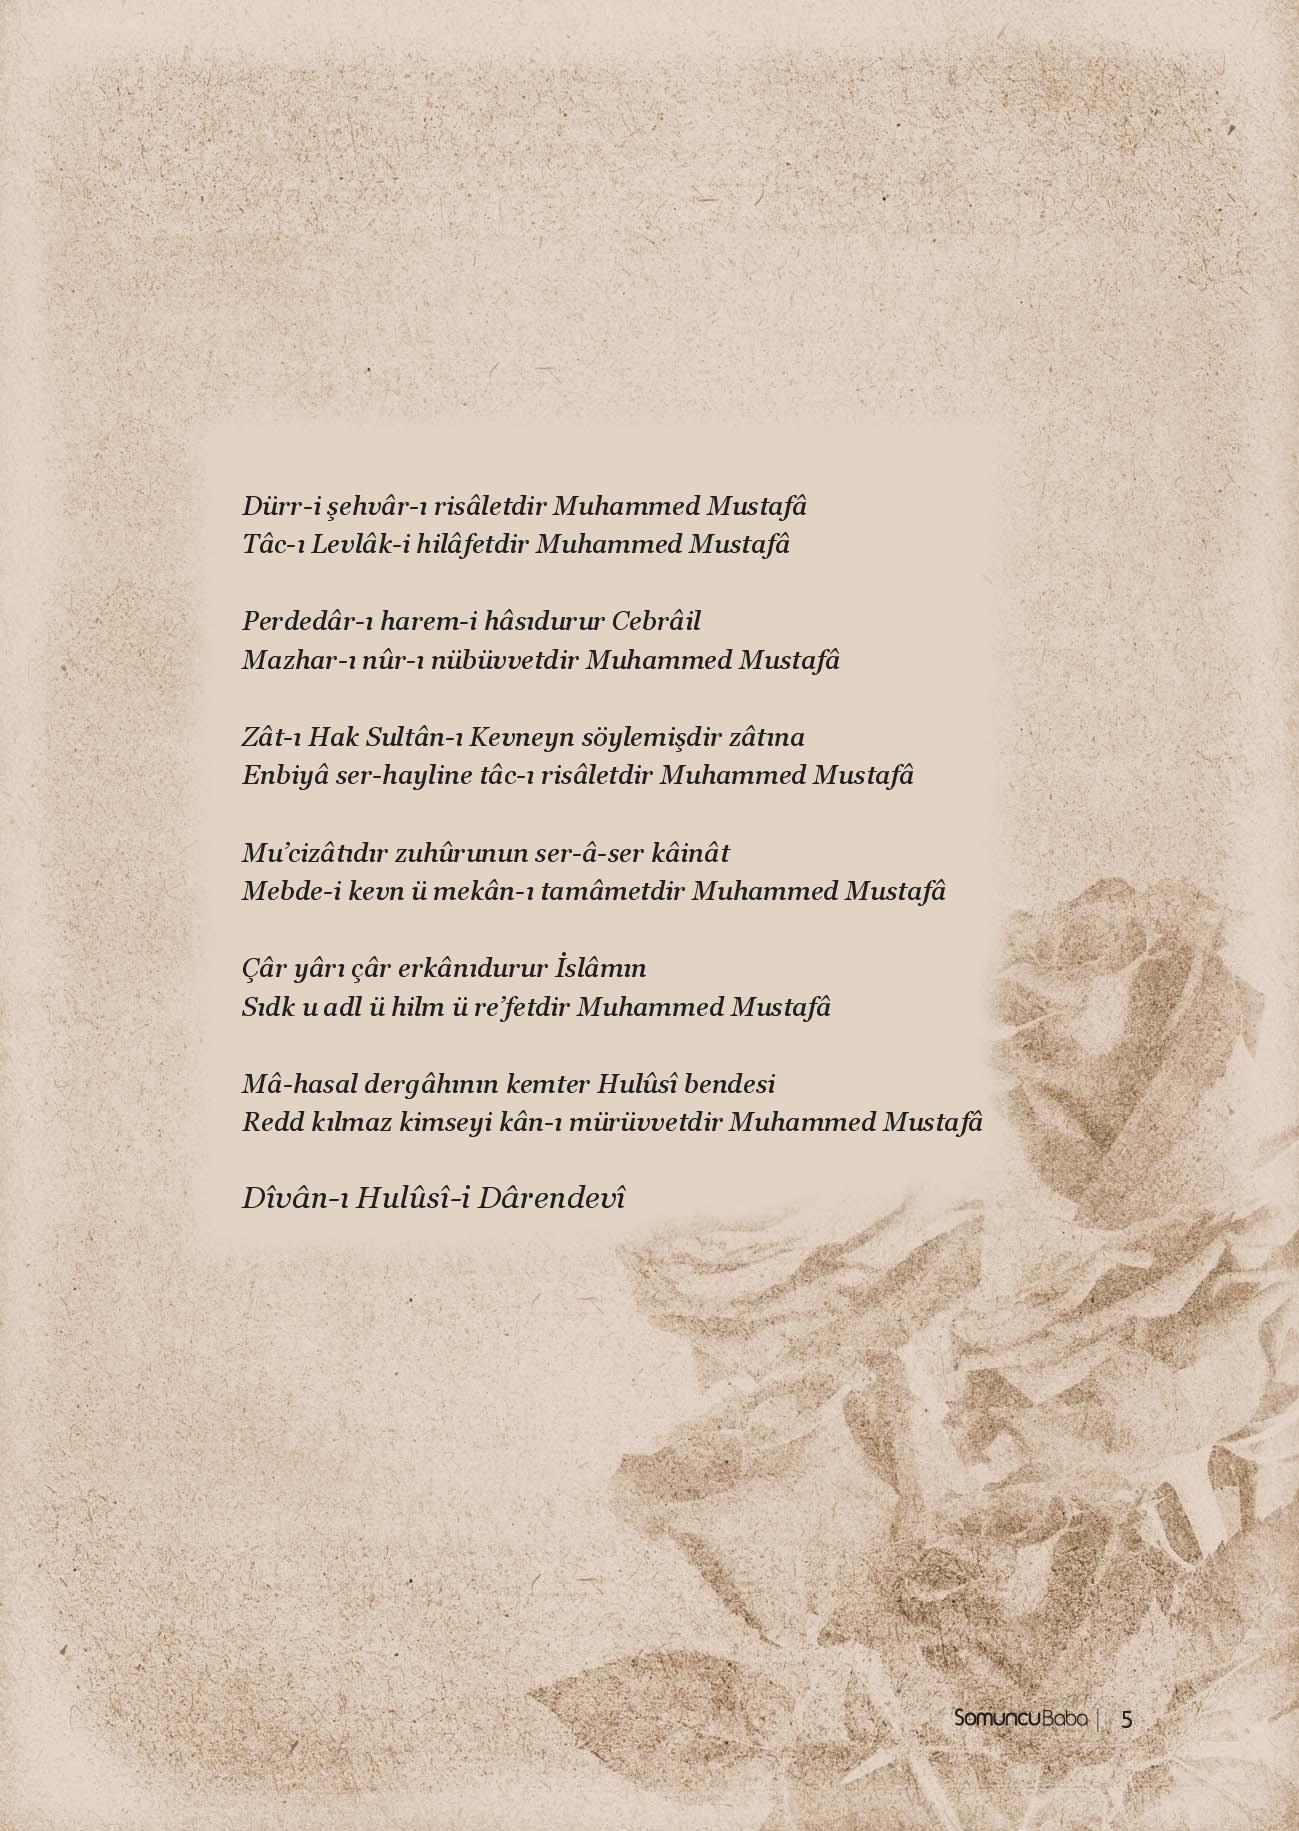 Dürr-i şehvâr-ı risâletdir Muhammed Mustafâ
Tâc-ı Levlâk-i hilâfetdir Muhammed Mustafâ
Perdedâr-ı harem-i hâsıdurur Cebrâil
Mazhar-ı nûr-ı nübüvvetdir Muhammed Mustafâ
Zât-ı Hak Sultân-ı Kevneyn söylemişdir zâtına
Enbiyâ ser-hayline tâc-ı risâletdir Muhammed Mustafâ
Mu’cizâtıdır zuhûrunun ser-â-ser kâinât
Mebde-i kevn ü mekân-ı tamâmetdir Muhammed Mustafâ
Çâr yârı çâr erkânıdurur İslâmın
Sıdk u adl ü hilm ü re’fetdir Muhammed Mustafâ
Mâ-hasal dergâhının kemter Hulûsî bendesi
Redd kılmaz kimseyi kân-ı mürüvvetdir Muhammed Mustafâ
Dîvân-ı Hulûsî-i Dârendevî
SomuncuBaba | 5